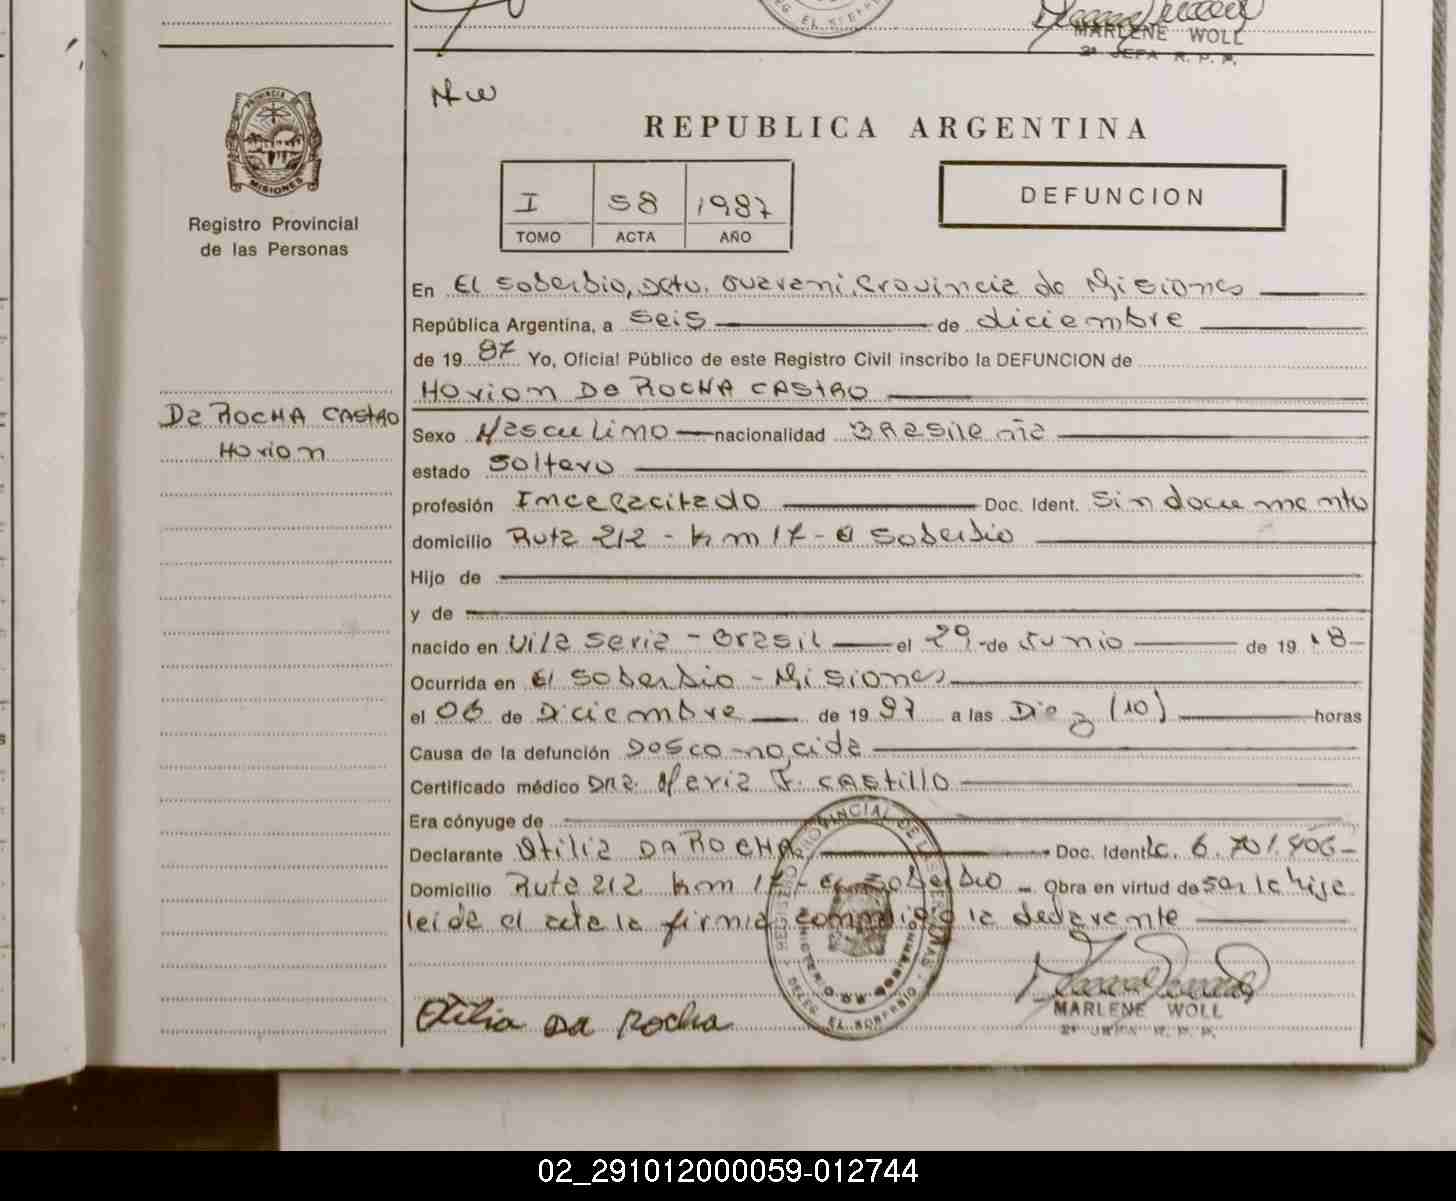 MARLENE WOLL
2ª JEFA R. P. P.
PROVINCIA DE
MISIONES
Registro Provincial
de las Personas
REPUBLICA ARGENTINA
I 58 1987
TOMO ACTA AÑO
DEFUNCION
En El Soberbio, Dcto. Guarani, Provincia de Misiones
República Argentina, a seis de diciembre
de 19 87 Yo, Oficial Público de este Registro Civil inscribo la DEFUNCION de
Horion Da ROCHA CASTRO
Da ROCHA CASTRO
Horion
Sexo Masculino nacionalidad Brasileña
estado Soltero
profesión Incapacitado Doc. Ident. Sin documento
domicilio Ruta 212 - km 17 - El Soberbio
Hijo de
y de
nacido en Vila Seria - Brasil el 29 de Junio de 19 18
Ocurrida en El Soberbio - Misiones
el 06 de Diciembre de 19 87 a las Diez (10) horas
Causa de la defunción Desconocida
Certificado médico Dra. Maria F. Castillo
Era cónyuge de
Declarante Otilia DA ROCHA Doc. Ident. C. 6.701.406
Domicilio Ruta 212 km 17 - El Soberbio Obra en virtud de ser la hija
leida el acta la firma conmigo la declarante
REGISTRO PROVINCIAL DE LAS PERSONAS
DELEG. EL SOBERBIO
Otilia DA Rocha
MARLENE WOLL
2ª JEFA R. P. P.
02_291012000059-012744